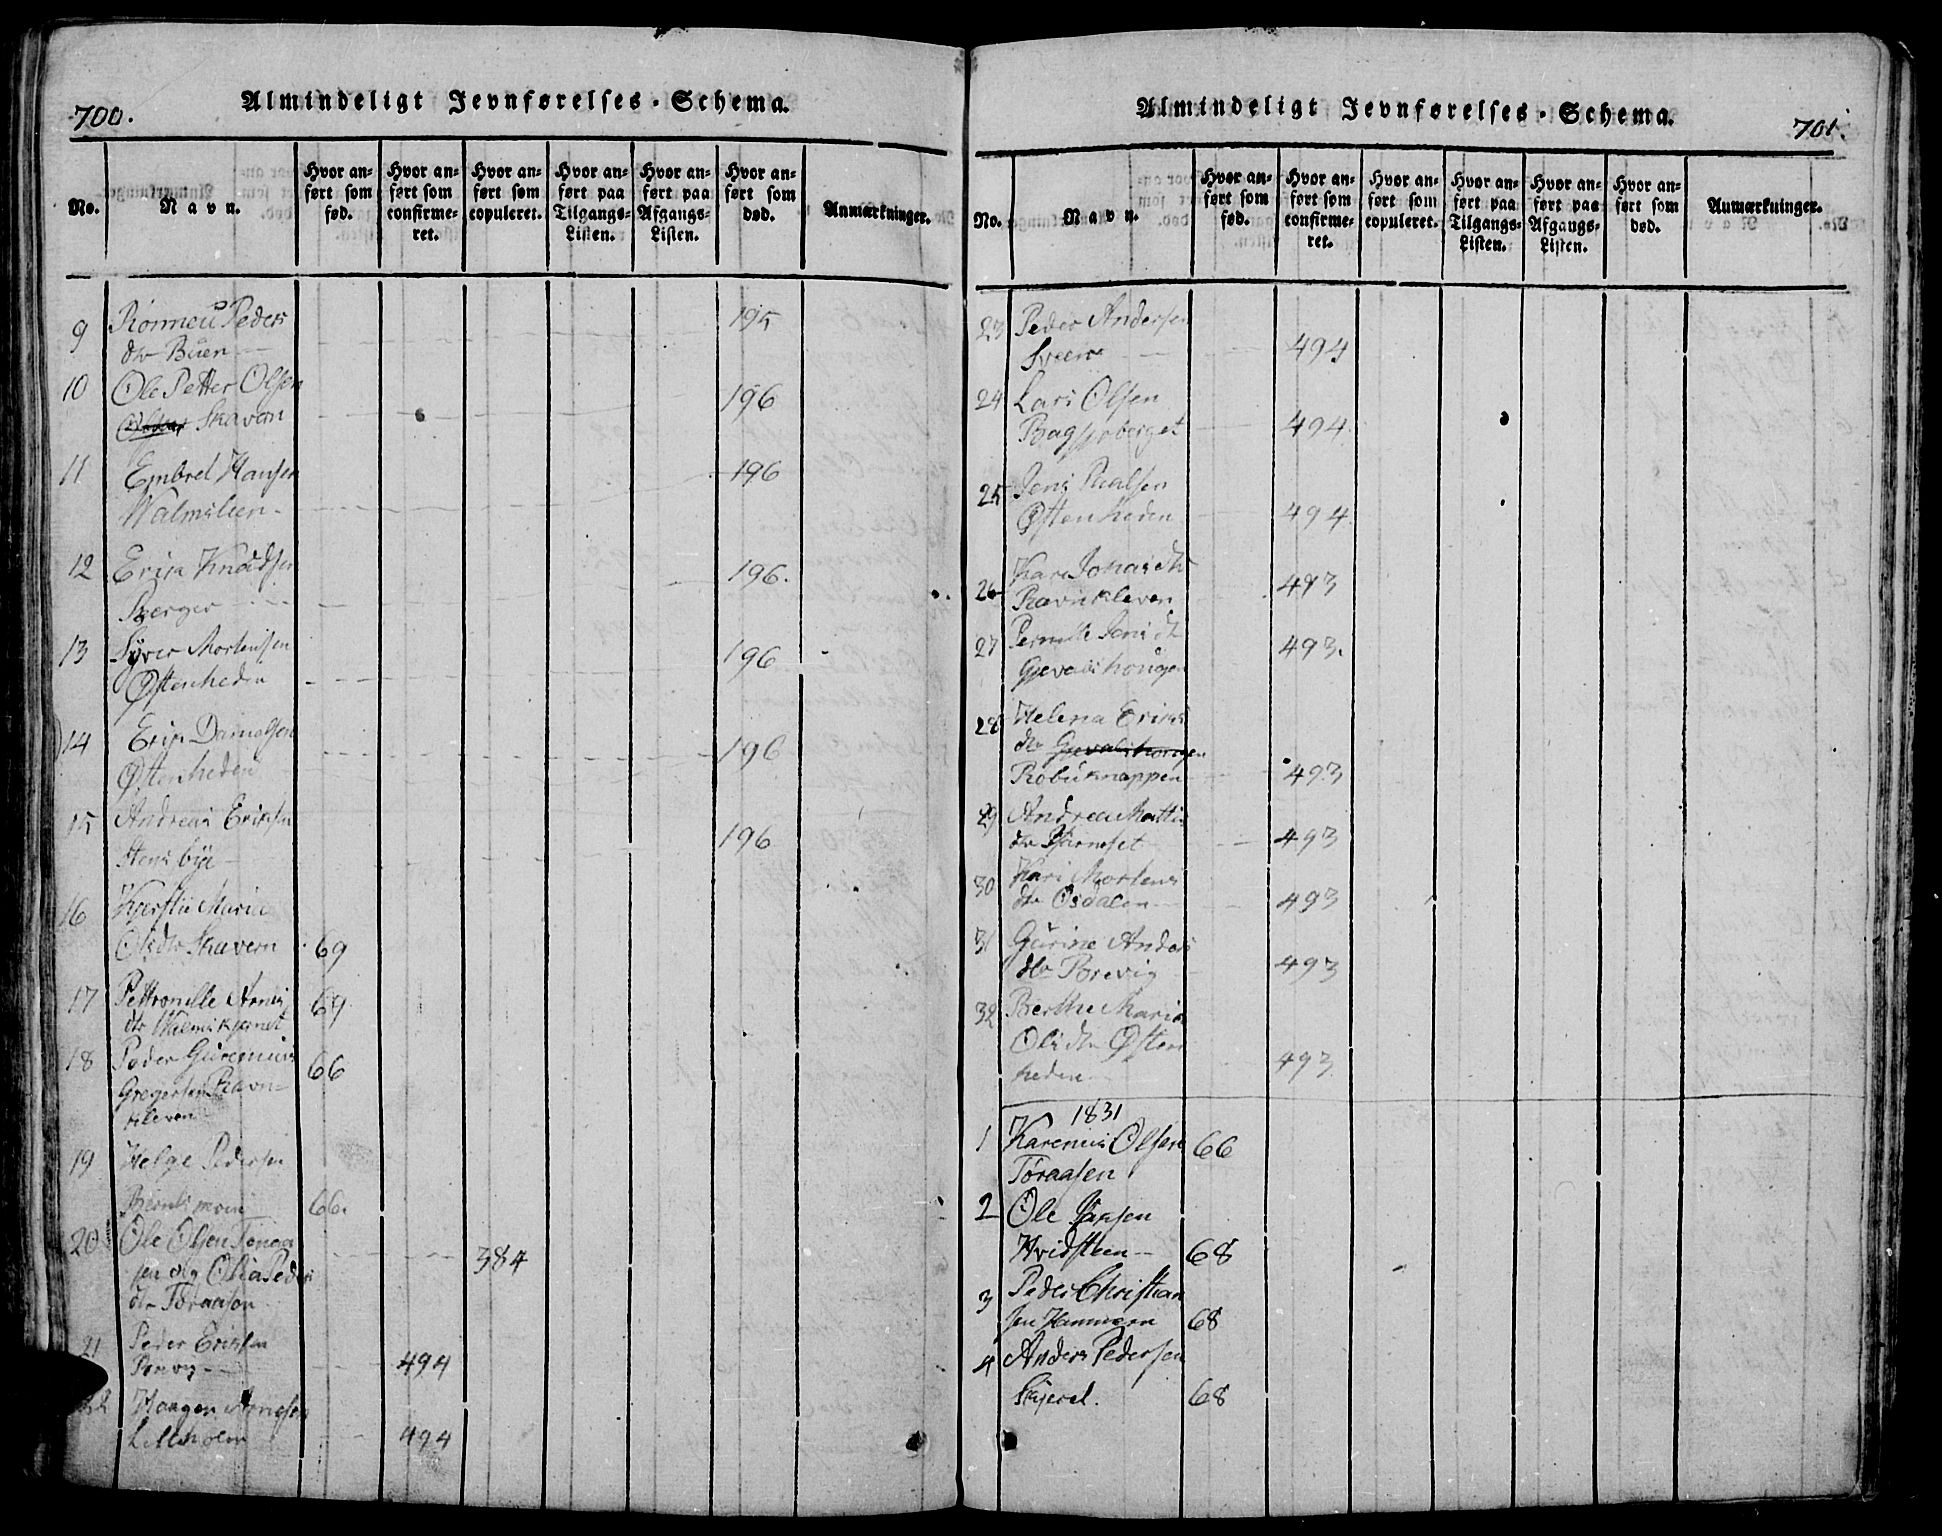 700.
Almindeligt Jevnførelses-Schema.
No.
Navn.
Hvor anført som fød.
Hvor anført som confirmeret.
Hvor anført som copuleret.
Hvor anført paa Tilgangs-Listen.
Hvor anført paa Afgangs-Listen.
Hvor anført som død.
Anmærkninger.
9 Rønneu Peders 195
dtr Büen
10 Ole Petter Olsen 196
Skavern
11 Embret Hansen 196
Walmslien
12 Erik Knudsen 196.
Berger
13 Syver Mortensen 196
Østenheden
14 Erik Danielsen 196
Østenheden
15 Andreas Eriksen 196
Stensbye
16 Kjersti Maria
Olsdtr Skavern 69
17 Pettronille Arnes 69
dtr
18 Peder Gurenius 66
Gregersen Ravn-
kleven
19 Helge Pedersen
66.
20 Ole Olsen Toraa 384
sen og Olia Peders
dtr Toraasen
21 Peder Eriksen
494
22 Haagen Arnesen
Lilleholm 494
Almindeligt Jevnførelses-Schema.
701.
No.
Navn.
Hvor anført som fød.
Hvor anført som confirmeret.
Hvor anført som copuleret.
Hvor anført paa Tilgangs-Listen.
Hvor anført paa Afgangs-Listen.
Hvor anført som død.
Anmærkninger.
23 Peder Andersen
Sveen 494
24 Lars Olsen
494.
25 Jens Paalsen
Østenheden 494.
26 Kari Jonasdtr 493
Ravnkleven
27 Pernille Jensdtr 493.
28 Helena Eriks
dtr
Robüknappen 493
29 Andrea Mattis
dtr 493
30 Kari Mortens
dtr Osdalen 493
31 Gürine Anders
dtr Brevig 493
32 Berthe Maria
Olsdtr Østen
heden 493
1831
1 Karenius Olsen 66
Toraasen
2 Ole
Hvidsteen 68
3 Peder Christian
sen 68
4 Anders Pedersen
Skjerel. 68